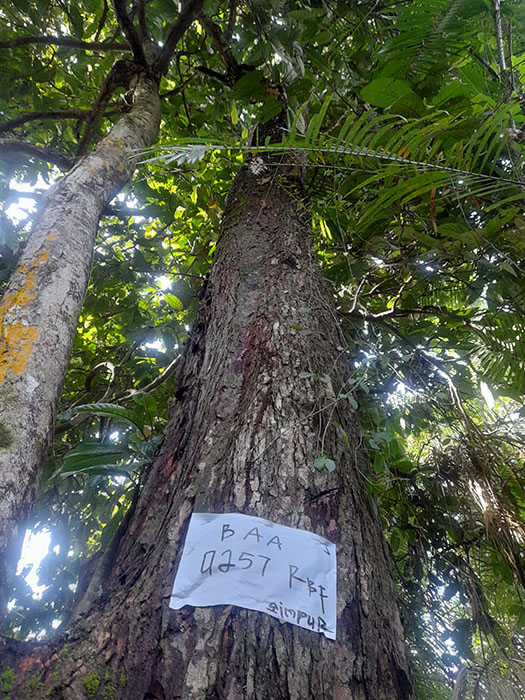 BAA
9257 RBF
simpuR